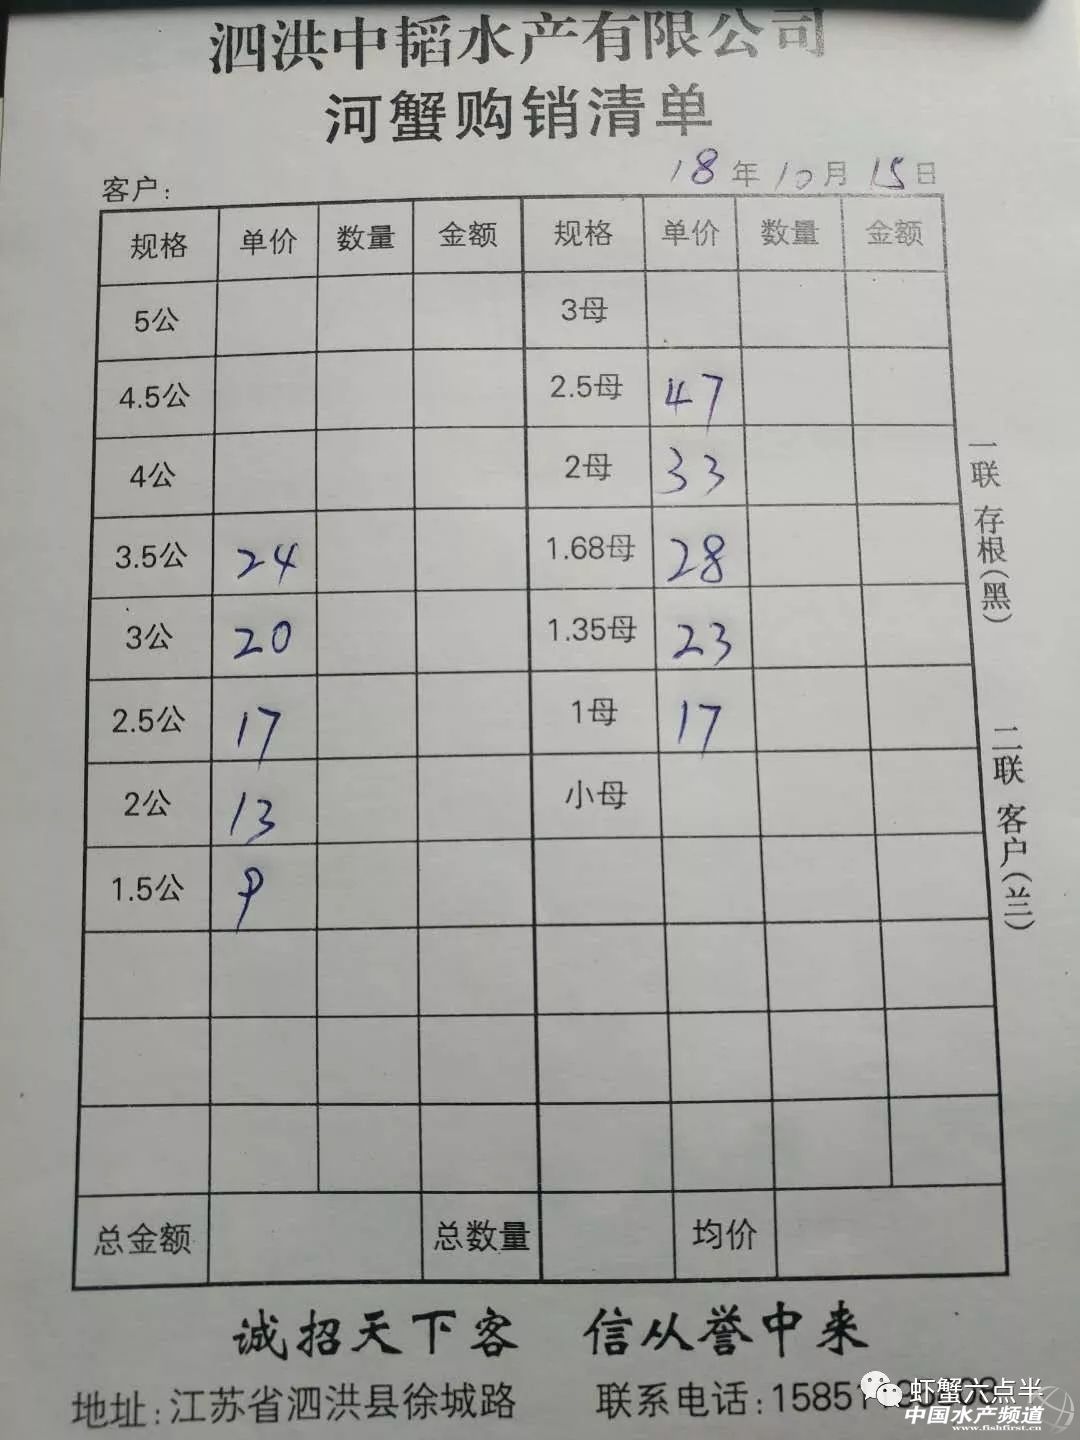 泗洪中韬水产有限公司
河蟹购销清单
客户: 18年10月15日
规格 单价 数量 金额 规格 单价 数量 金额
5公 3母
4.5公 2.5母 47
4公 2母 33
3.5公 24 1.68母 28
3公 20 1.35母 23
2.5公 17 1母 17
2公 13 小母
1.5公 9
总金额 总数量 均价
一联 存根(黑)
二联 客户(兰)
诚招天下客 信从誉中来
地址:江苏省泗洪县徐城路 联系电话:15851
虾蟹六点半
中国水产频道
www.fishfirst.cn